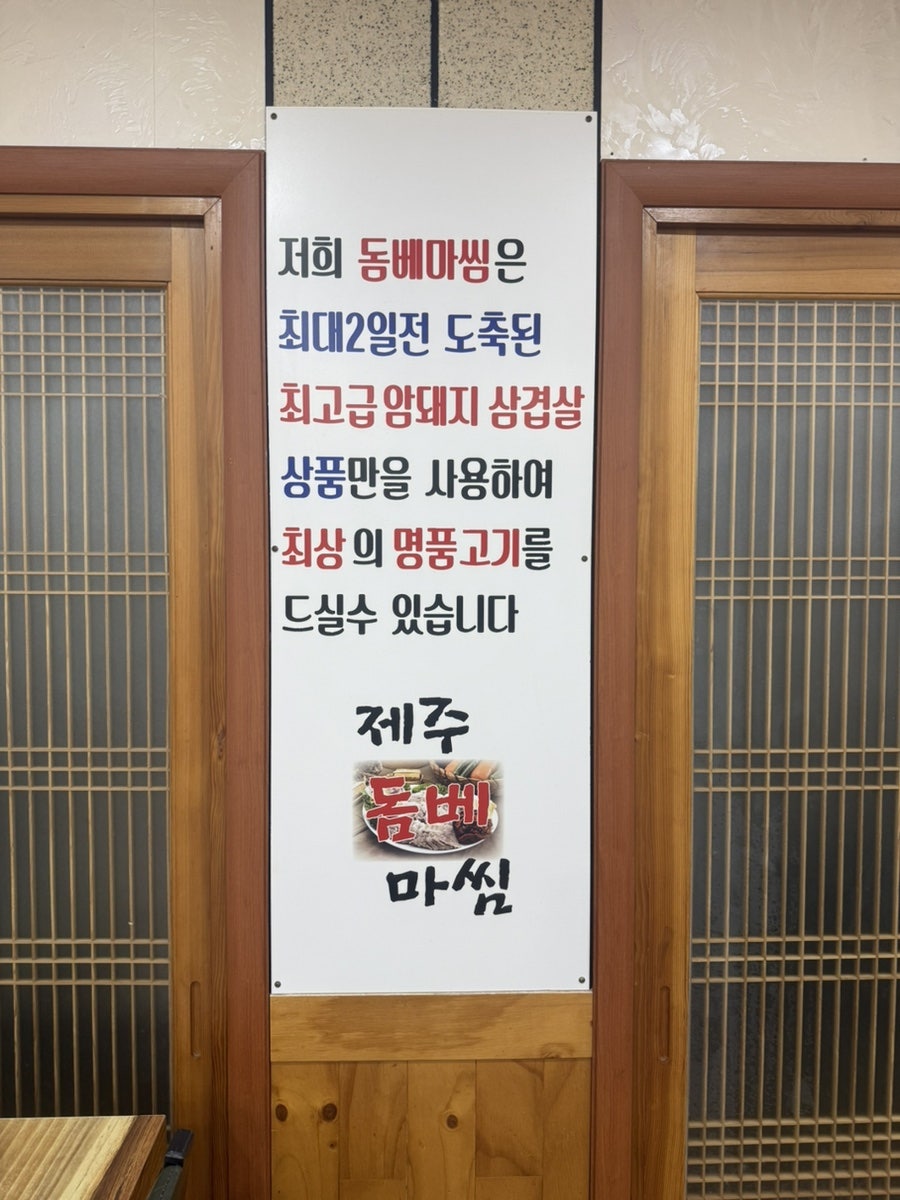 저희 돔베마씸은
최대2일전 도축된
최고급 암돼지 삼겹살
상품만을 사용하여
최상의 명품고기를
드실수 있습니다
제주
돔베
마씸